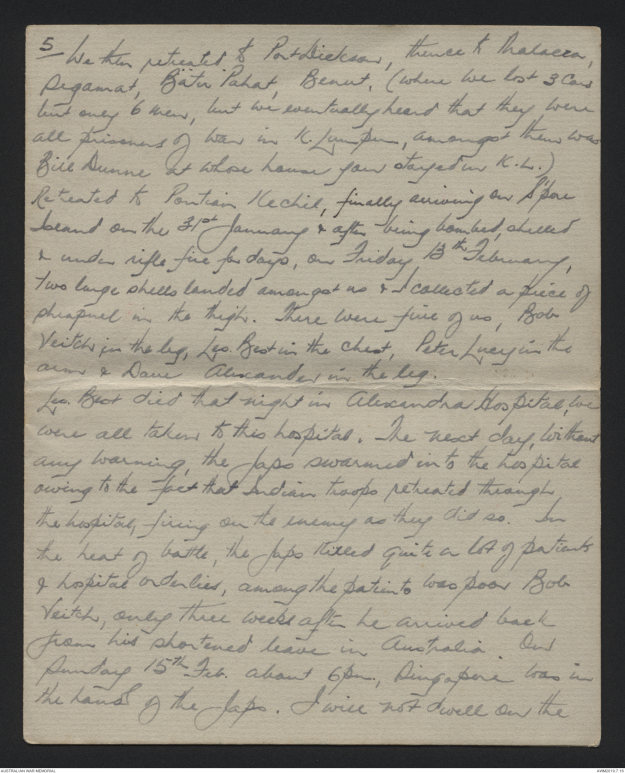 5 We then retreated to Port Dickson, thence to Malacca,
Segamat, Batu Pahat, Benut, (where we lost 3 cars
but only 6 men, but we eventually heard that they were
all prisoners of war in K. Lumpur, amongst them was
Bill Dunne at whose house you stayed in K.L.)
Retreated to Pontian Kechil, finally arriving on S'pore
Island on the 31st January & after being bombed, shelled
& under rifle fire for days, on Friday 13th February,
two large shells landed amongst us & I collected a piece of
shrapnel in the thigh. There were five of us, Bob
Veitch in the leg, Les. Best in the chest, Peter Lucy in the
arm & Dave Alexander in the leg.
Les. Best died that night in Alexandra Hospital, we
were all taken to this hospital. The next day, without
any warning, the Japs swarmed into the hospital
owing to the fact that Indian troops retreated through
the hospital, firing on the enemy as they did so. In
the heat of battle, the Japs killed quite a lot of patients
& hospital orderlies, among the patients was poor Bob
Veitch, only three weeks after he arrived back
from his shortened leave in Australia. On
Sunday 15th Feb. about 6pm., Singapore was in
the hands of the Japs. I will not dwell on the
AUSTRALIAN WAR MEMORIAL